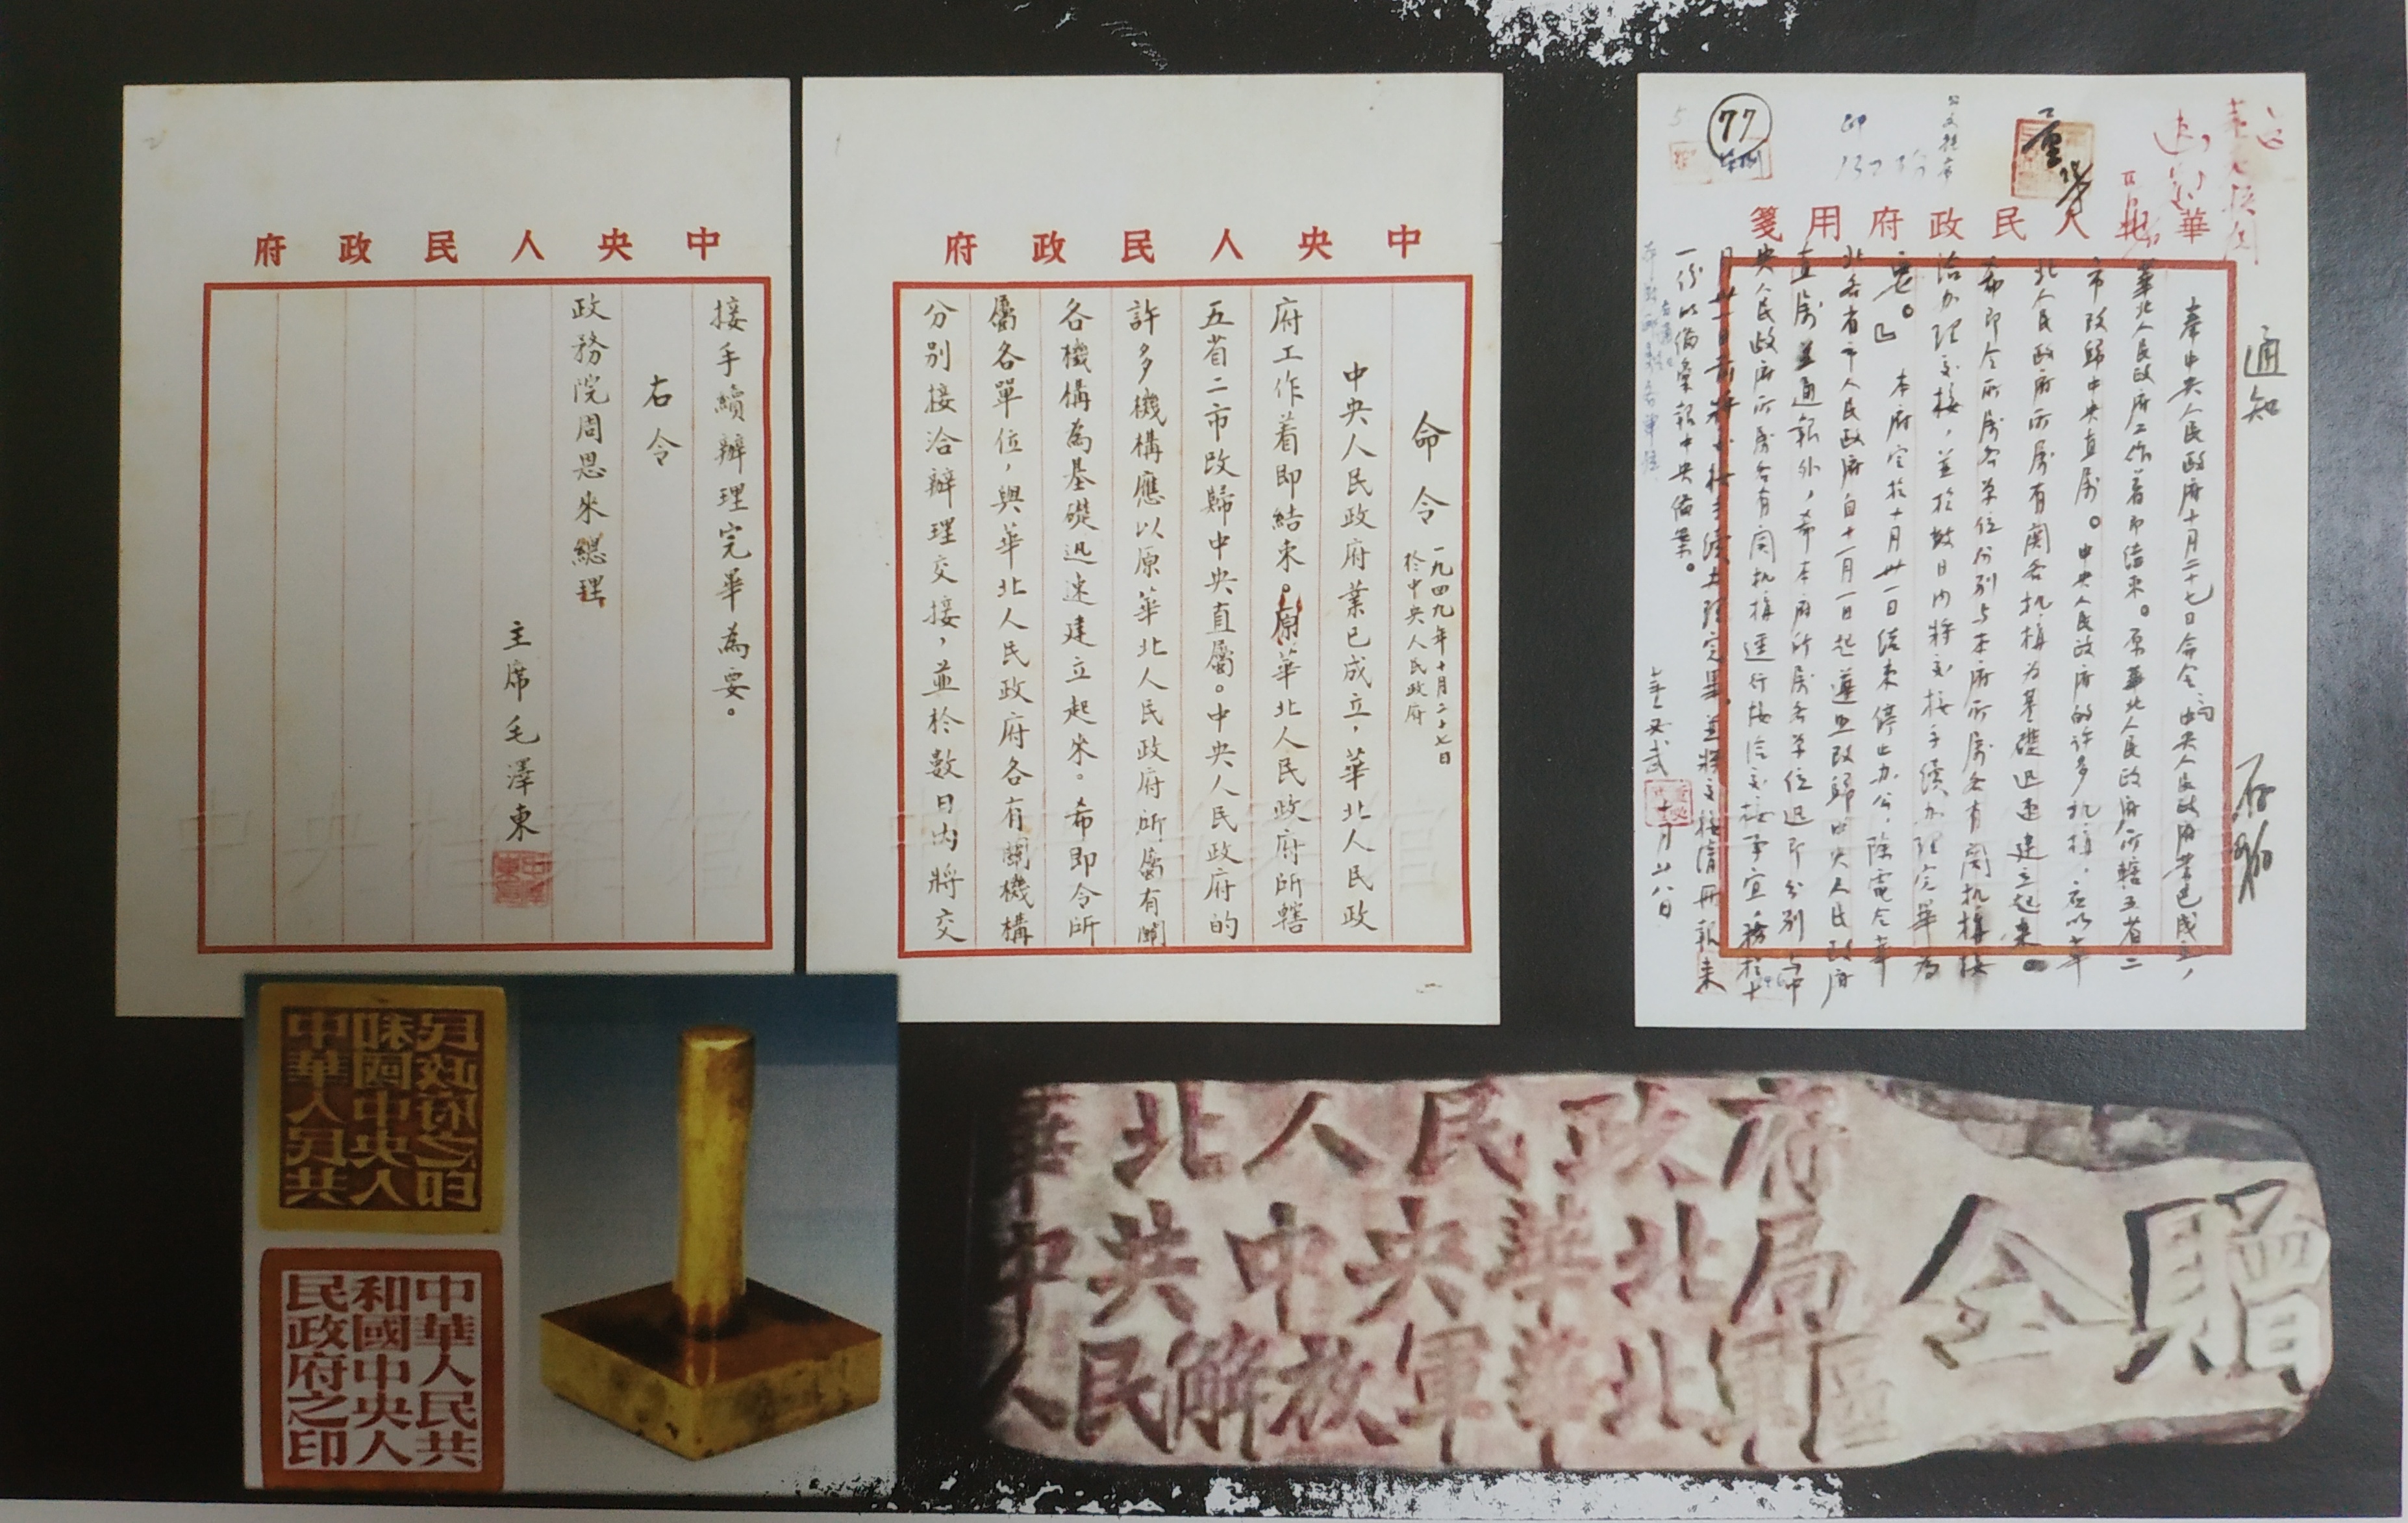 中央人民政府
命令 一九四九年十月二十七日
於中央人民政府
中央人民政府業已成立，華北人民政
府工作着即結束。原華北人民政府所轄
五省二市改歸中央直屬。中央人民政府的
許多機構應以原華北人民政府所屬有關
各機構為基礎迅速建立起來。希即令所
屬各單位，與華北人民政府各有關機構
分別接洽辦理交接，並於數日內將交
中央人民政府
接手續辦理完畢為要。
右令
政務院周恩來總理
主席毛澤東
中央档案馆
中央档案馆
77
華北人民政府用箋
通知
奉中央人民政府十月二十七日命令内中央人民政府業已成立，
華北人民政府工作着即结束。原華北人民政府所轄五省二
市改歸中央直属。中央人民政府的许多机構，应以華
北人民政府所属有関各机構为基礎迅速建立起來
希即令所属各单位分别与本府所属各有関机構接
洽办理交接，並於数日内将交接手續办理完畢为
要。』本府定於十月卅一日结束停止办公，除電令華
北各省市人民政府自十一月一日起遵照改歸中央人民政府
直属並通報外，希本府所属各单位迅即分别与中
央人民政府所属各有関机構進行接洽交接事宜務於十
月卅一日前将交接手續办理完畢，並将交接清册報来
一份以備彙報中央備案。
董必武
十月廿八日
中華人民共
和國中央人
民政府之印
中華人民共
和國中央人
民政府之印
華北人民政府
中共中央華北局
人民解放軍華北軍區
仝贈